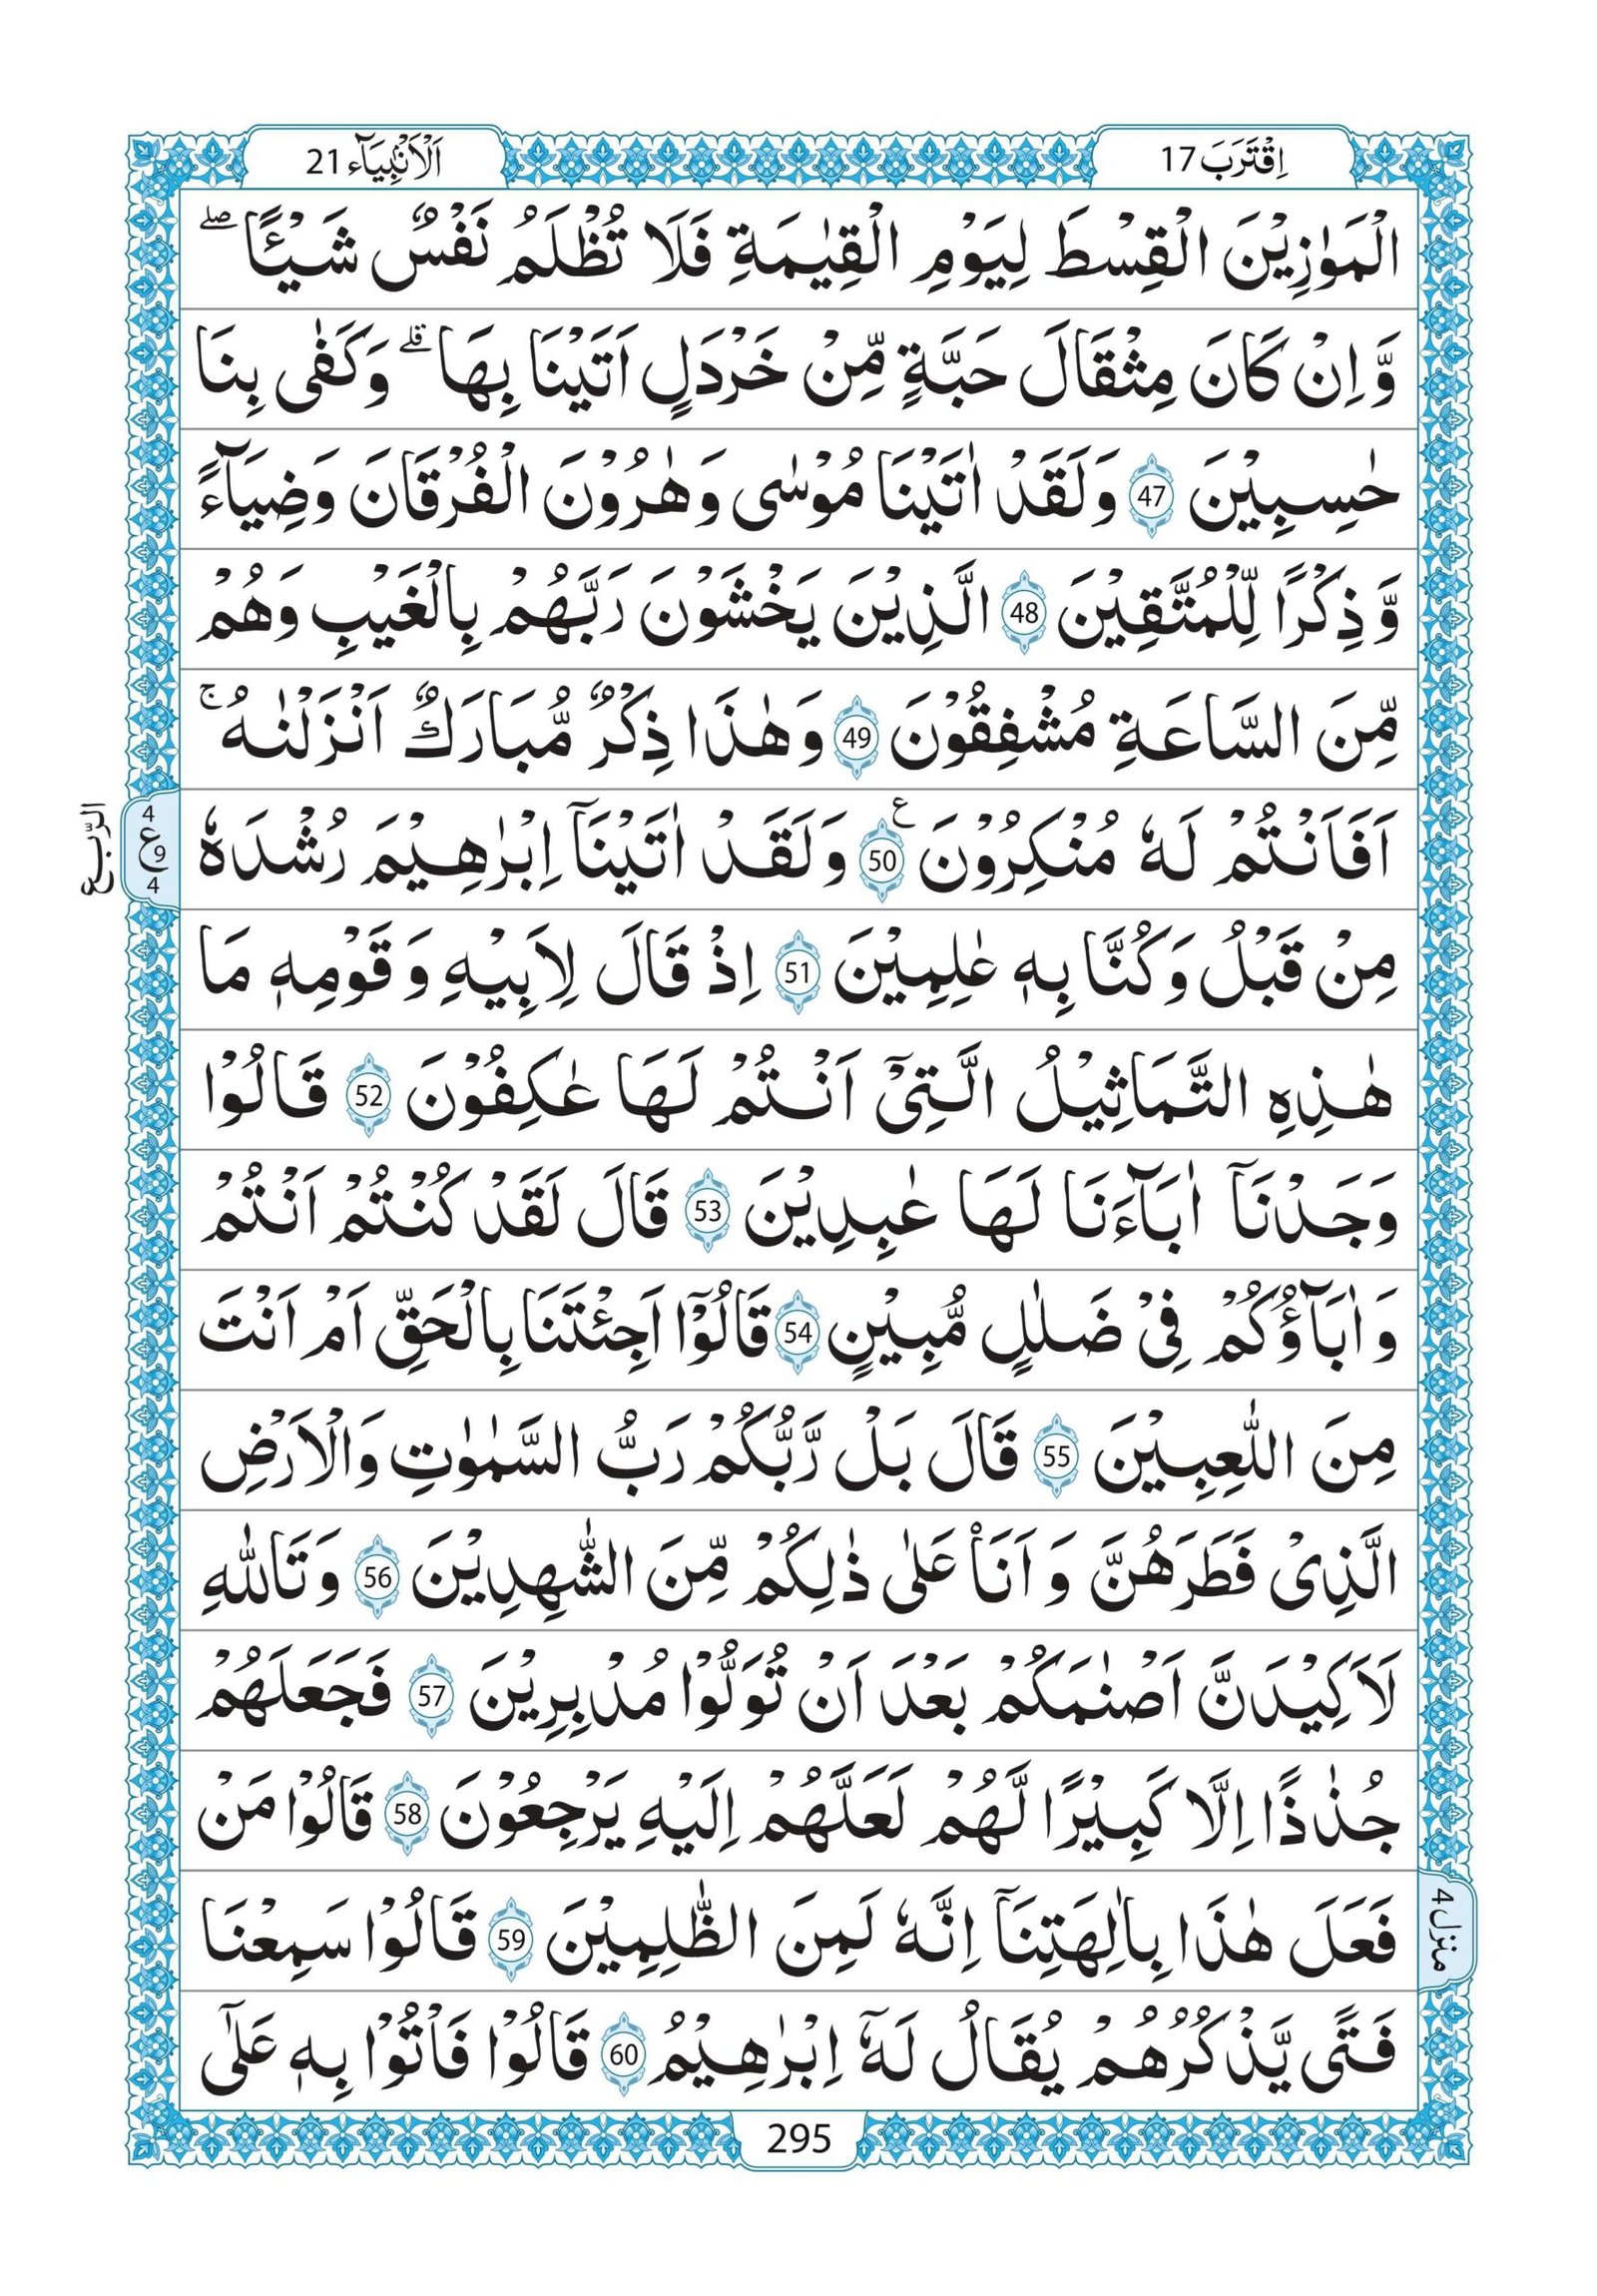 اِقْتَرَبَ 17
اَلْاَنْۢبِيَآء 21
الْمَوٰزِيْنَ الْقِسْطَ لِيَوْمِ الْقِيٰمَةِ فَلَا تُظْلَمُ نَفْسٌ شَيْـًٔا ۖ
وَّاِنْ كَانَ مِثْقَالَ حَبَّةٍ مِّنْ خَرْدَلٍ اَتَيْنَا بِهَا ۗ وَكَفٰى بِنَا
حٰسِبِيْنَ 47 وَلَقَدْ اٰتَيْنَا مُوْسٰى وَهٰرُوْنَ الْفُرْقَانَ وَضِيَآءً
وَّذِكْرًا لِّلْمُتَّقِيْنَ 48 الَّذِيْنَ يَخْشَوْنَ رَبَّهُمْ بِالْغَيْبِ وَهُمْ
مِّنَ السَّاعَةِ مُشْفِقُوْنَ 49 وَهٰذَا ذِكْرٌ مُّبَارَكٌ اَنْزَلْنٰهُ ۚ
اَفَاَنْتُمْ لَهٗ مُنْكِرُوْنَ ع 50 وَلَقَدْ اٰتَيْنَآ اِبْرٰهِيْمَ رُشْدَهٗ
الرّبع
4
ع 9
4
مِنْ قَبْلُ وَكُنَّا بِهٖ عٰلِمِيْنَ 51 اِذْ قَالَ لِاَبِيْهِ وَقَوْمِهٖ مَا
هٰذِهِ التَّمَاثِيْلُ الَّتِيْٓ اَنْتُمْ لَهَا عٰكِفُوْنَ 52 قَالُوْا
وَجَدْنَآ اٰبَآءَنَا لَهَا عٰبِدِيْنَ 53 قَالَ لَقَدْ كُنْتُمْ اَنْتُمْ
وَاٰبَآؤُكُمْ فِيْ ضَلٰلٍ مُّبِيْنٍ 54 قَالُوْٓا اَجِئْتَنَا بِالْحَقِّ اَمْ اَنْتَ
مِنَ اللّٰعِبِيْنَ 55 قَالَ بَلْ رَّبُّكُمْ رَبُّ السَّمٰوٰتِ وَالْاَرْضِ
الَّذِيْ فَطَرَهُنَّ وَاَنَا۠ عَلٰى ذٰلِكُمْ مِّنَ الشّٰهِدِيْنَ 56 وَتَاللّٰهِ
لَاَكِيْدَنَّ اَصْنٰمَكُمْ بَعْدَ اَنْ تُوَلُّوْا مُدْبِرِيْنَ 57 فَجَعَلَهُمْ
جُذٰذًا اِلَّا كَبِيْرًا لَّهُمْ لَعَلَّهُمْ اِلَيْهِ يَرْجِعُوْنَ 58 قَالُوْا مَنْ
فَعَلَ هٰذَا بِاٰلِهَتِنَآ اِنَّهٗ لَمِنَ الظّٰلِمِيْنَ 59 قَالُوْا سَمِعْنَا
منزل 4
فَتًى يَّذْكُرُهُمْ يُقَالُ لَهٗٓ اِبْرٰهِيْمُ 60 قَالُوْا فَاْتُوْا بِهٖ عَلٰٓى
295